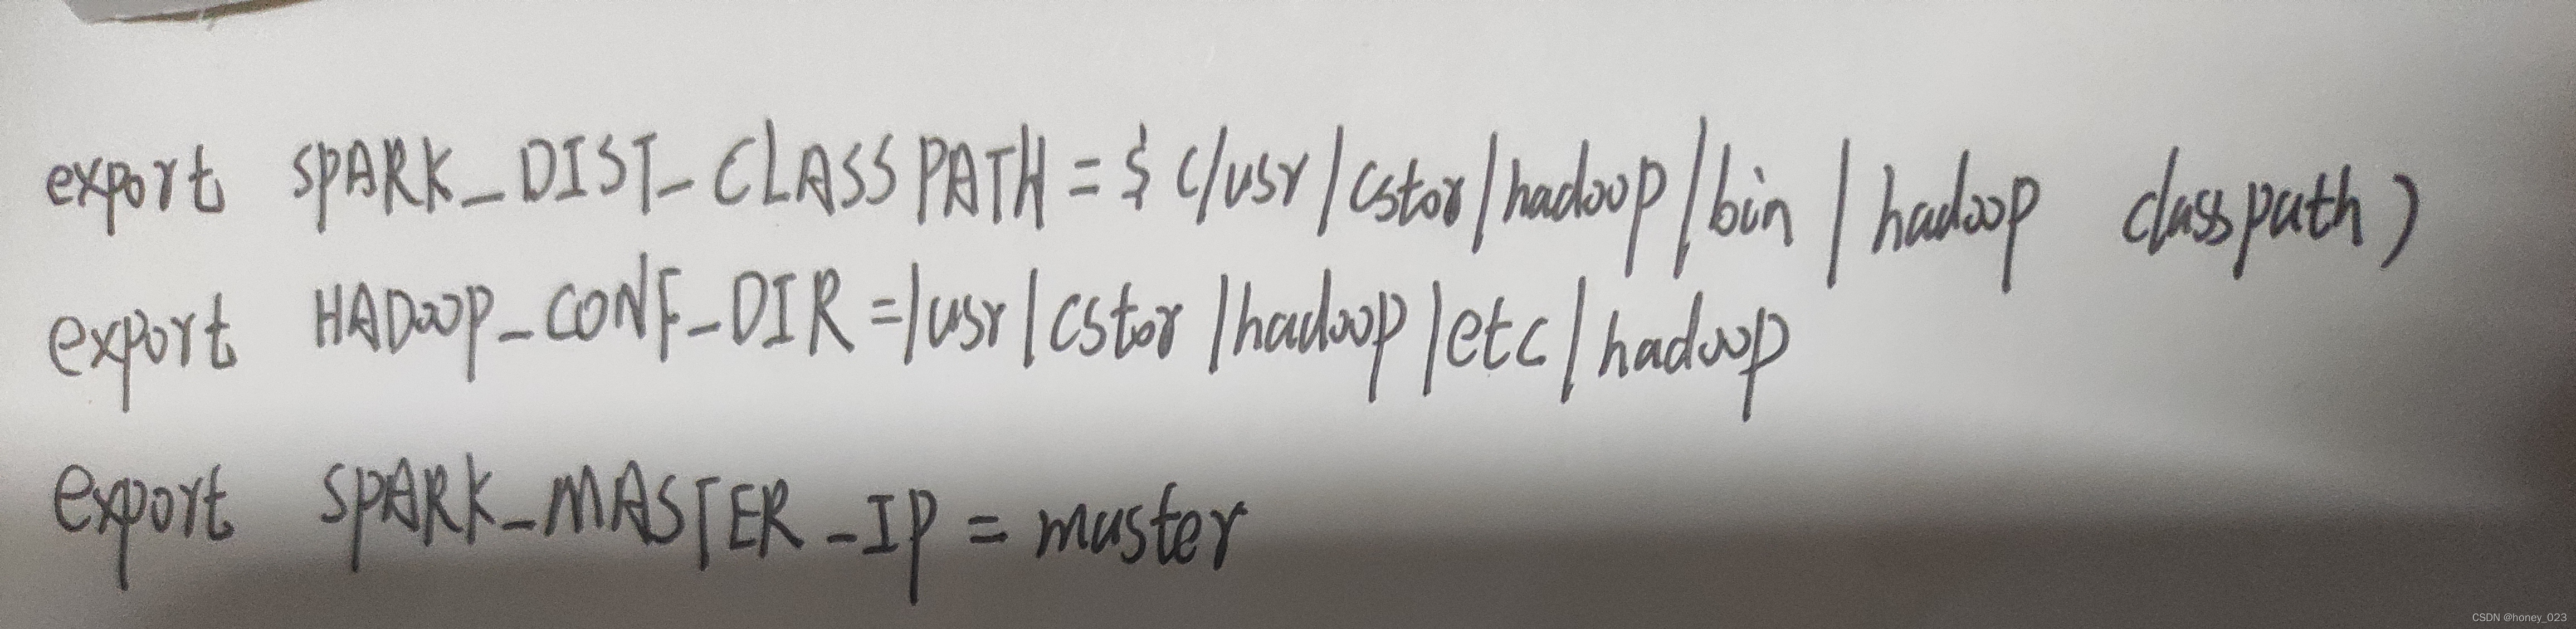 export SPARK_DIST_CLASSPATH=$(/usr/cstor/hadoop/bin/hadoop classpath)
export HADOOP_CONF_DIR=/usr/cstor/hadoop/etc/hadoop
export SPARK_MASTER_IP=master
CSDN @honey_023